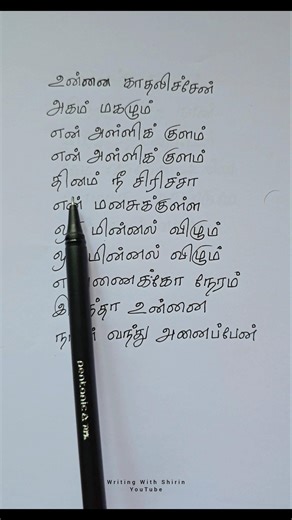 உன்னை காதலிச்சேன்
அகம் மகழும்
என் அள்ளிக் குளம்
என் அள்ளிக் குளம்
தினம் நீ சிரிச்சா
என் மனசுக்குள்ள
மின்னல் விழும்
மின்னல் விழும்
நேரம்
உன்னை
வந்து அனைப்பேன்
pentonic
Writing With Shirin
YouTube